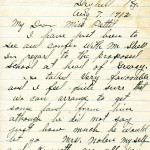 Aug 5 1912
My Dear Miss Pettit
I have just been to
see and confer with Mr Shell
in regard to the proposed
school at head of Greasy.
He talked very favorable
and I feel quite sure that
we can arrange to get
some land from him
although he did not say
just how much he would
let go Mrs. Nolen myself